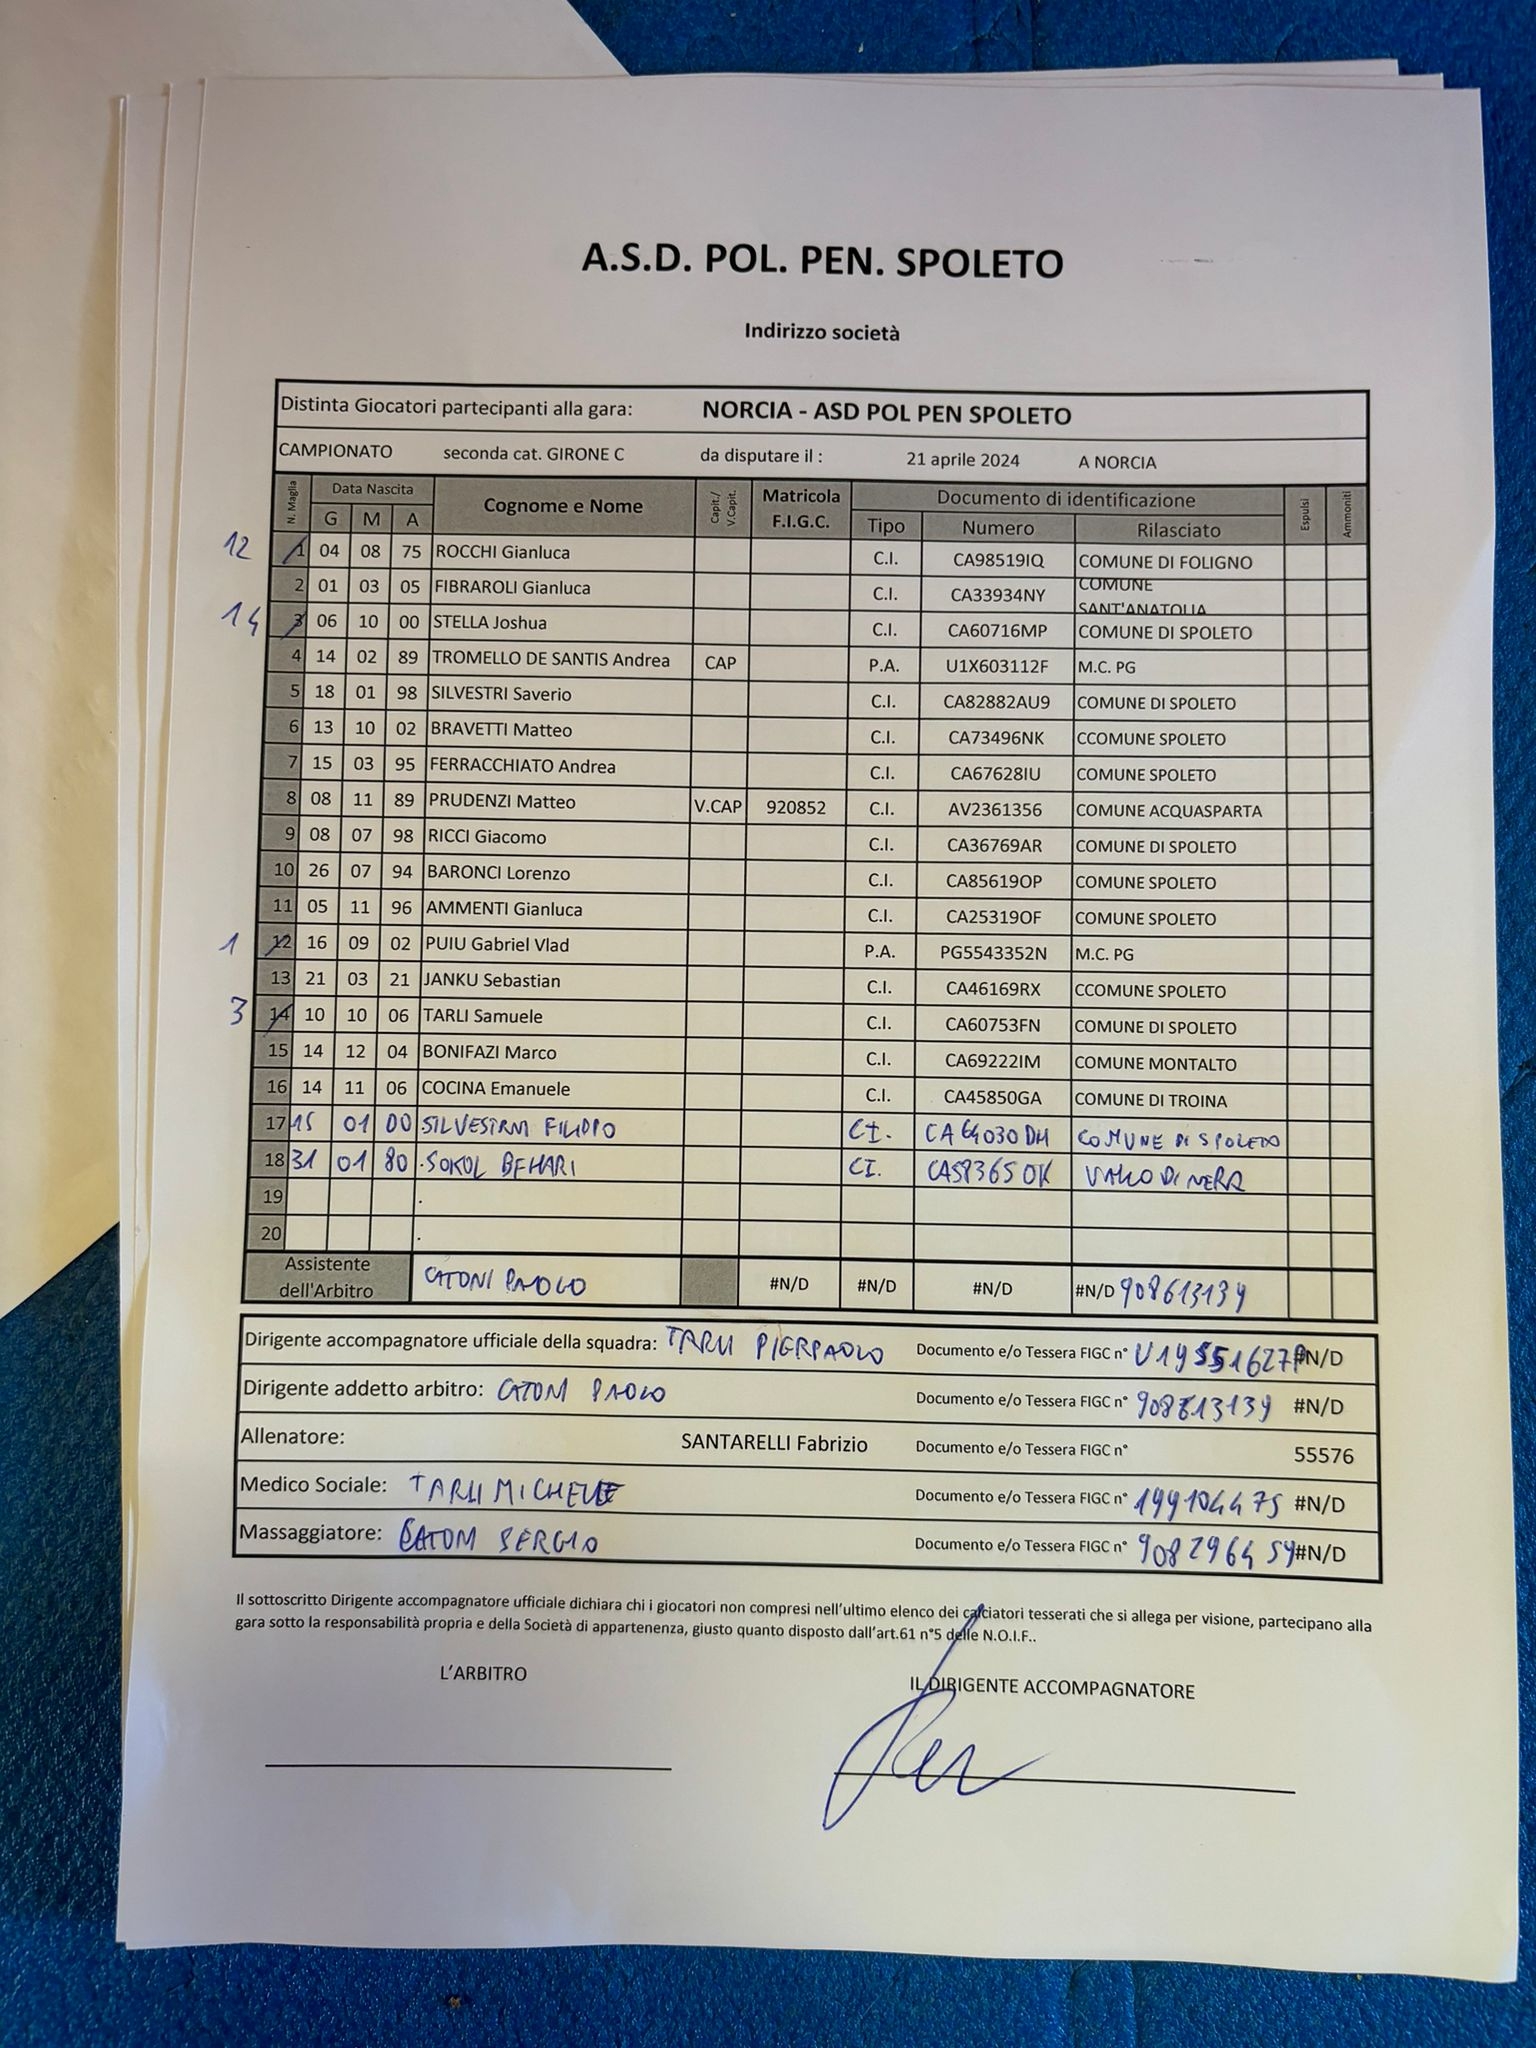 A.S.D. POL. PEN. SPOLETO
Indirizzo società
Distinta Giocatori partecipanti alla gara: NORCIA - ASD POL PEN SPOLETO
CAMPIONATO seconda cat. GIRONE C da disputare il : 21 aprile 2024 A NORCIA
N. Maglia Data Nascita Cognome e Nome Capit./ V.Capit. Matricola F.I.G.C. Documento di identificazione Espulsi Ammoniti
G M A Tipo Numero Rilasciato
12 1 04 08 75 ROCCHI Gianluca C.I. CA98519IQ COMUNE DI FOLIGNO
2 01 03 05 FIBRAROLI Gianluca C.I. CA33934NY COMUNE SANT'ANATOLIA
14 3 06 10 00 STELLA Joshua C.I. CA60716MP COMUNE DI SPOLETO
4 14 02 89 TROMELLO DE SANTIS Andrea CAP P.A. U1X603112F M.C. PG
5 18 01 98 SILVESTRI Saverio C.I. CA82882AU9 COMUNE DI SPOLETO
6 13 10 02 BRAVETTI Matteo C.I. CA73496NK CCOMUNE SPOLETO
7 15 03 95 FERRACCHIATO Andrea C.I. CA67628IU COMUNE SPOLETO
8 08 11 89 PRUDENZI Matteo V.CAP 920852 C.I. AV2361356 COMUNE ACQUASPARTA
9 08 07 98 RICCI Giacomo C.I. CA36769AR COMUNE DI SPOLETO
10 26 07 94 BARONCI Lorenzo C.I. CA85619OP COMUNE SPOLETO
11 05 11 96 AMMENTI Gianluca C.I. CA25319OF COMUNE SPOLETO
1 12 16 09 02 PUIU Gabriel Vlad P.A. PG5543352N M.C. PG
13 21 03 21 JANKU Sebastian C.I. CA46169RX CCOMUNE SPOLETO
3 14 10 10 06 TARLI Samuele C.I. CA60753FN COMUNE DI SPOLETO
15 14 12 04 BONIFAZI Marco C.I. CA69222IM COMUNE MONTALTO
16 14 11 06 COCINA Emanuele C.I. CA45850GA COMUNE DI TROINA
17 15 01 00 SILVESTRI FILIPPO CI. CA64030DH COMUNE DI SPOLETO
18 31 01 80 .SOKOL BEHARI CI. VALLO DI NERA
19 .
20 .
Assistente dell'Arbitro CATONI PAOLO #N/D #N/D #N/D #N/D 908613139
Dirigente accompagnatore ufficiale della squadra: TARLI PIERPAOLO Documento e/o Tessera FIGC n° #N/D
Dirigente addetto arbitro: CATONI PAOLO Documento e/o Tessera FIGC n° 908613139 #N/D
Allenatore: SANTARELLI Fabrizio Documento e/o Tessera FIGC n° 55576
Medico Sociale: TARLI MICHELE Documento e/o Tessera FIGC n° #N/D
Massaggiatore: CATONI SERGIO Documento e/o Tessera FIGC n° #N/D
Il sottoscritto Dirigente accompagnatore ufficiale dichiara chi i giocatori non compresi nell'ultimo elenco dei calciatori tesserati che si allega per visione, partecipano alla
gara sotto la responsabilità propria e della Società di appartenenza, giusto quanto disposto dall'art.61 n°5 delle N.O.I.F..
L'ARBITRO IL DIRIGENTE ACCOMPAGNATORE